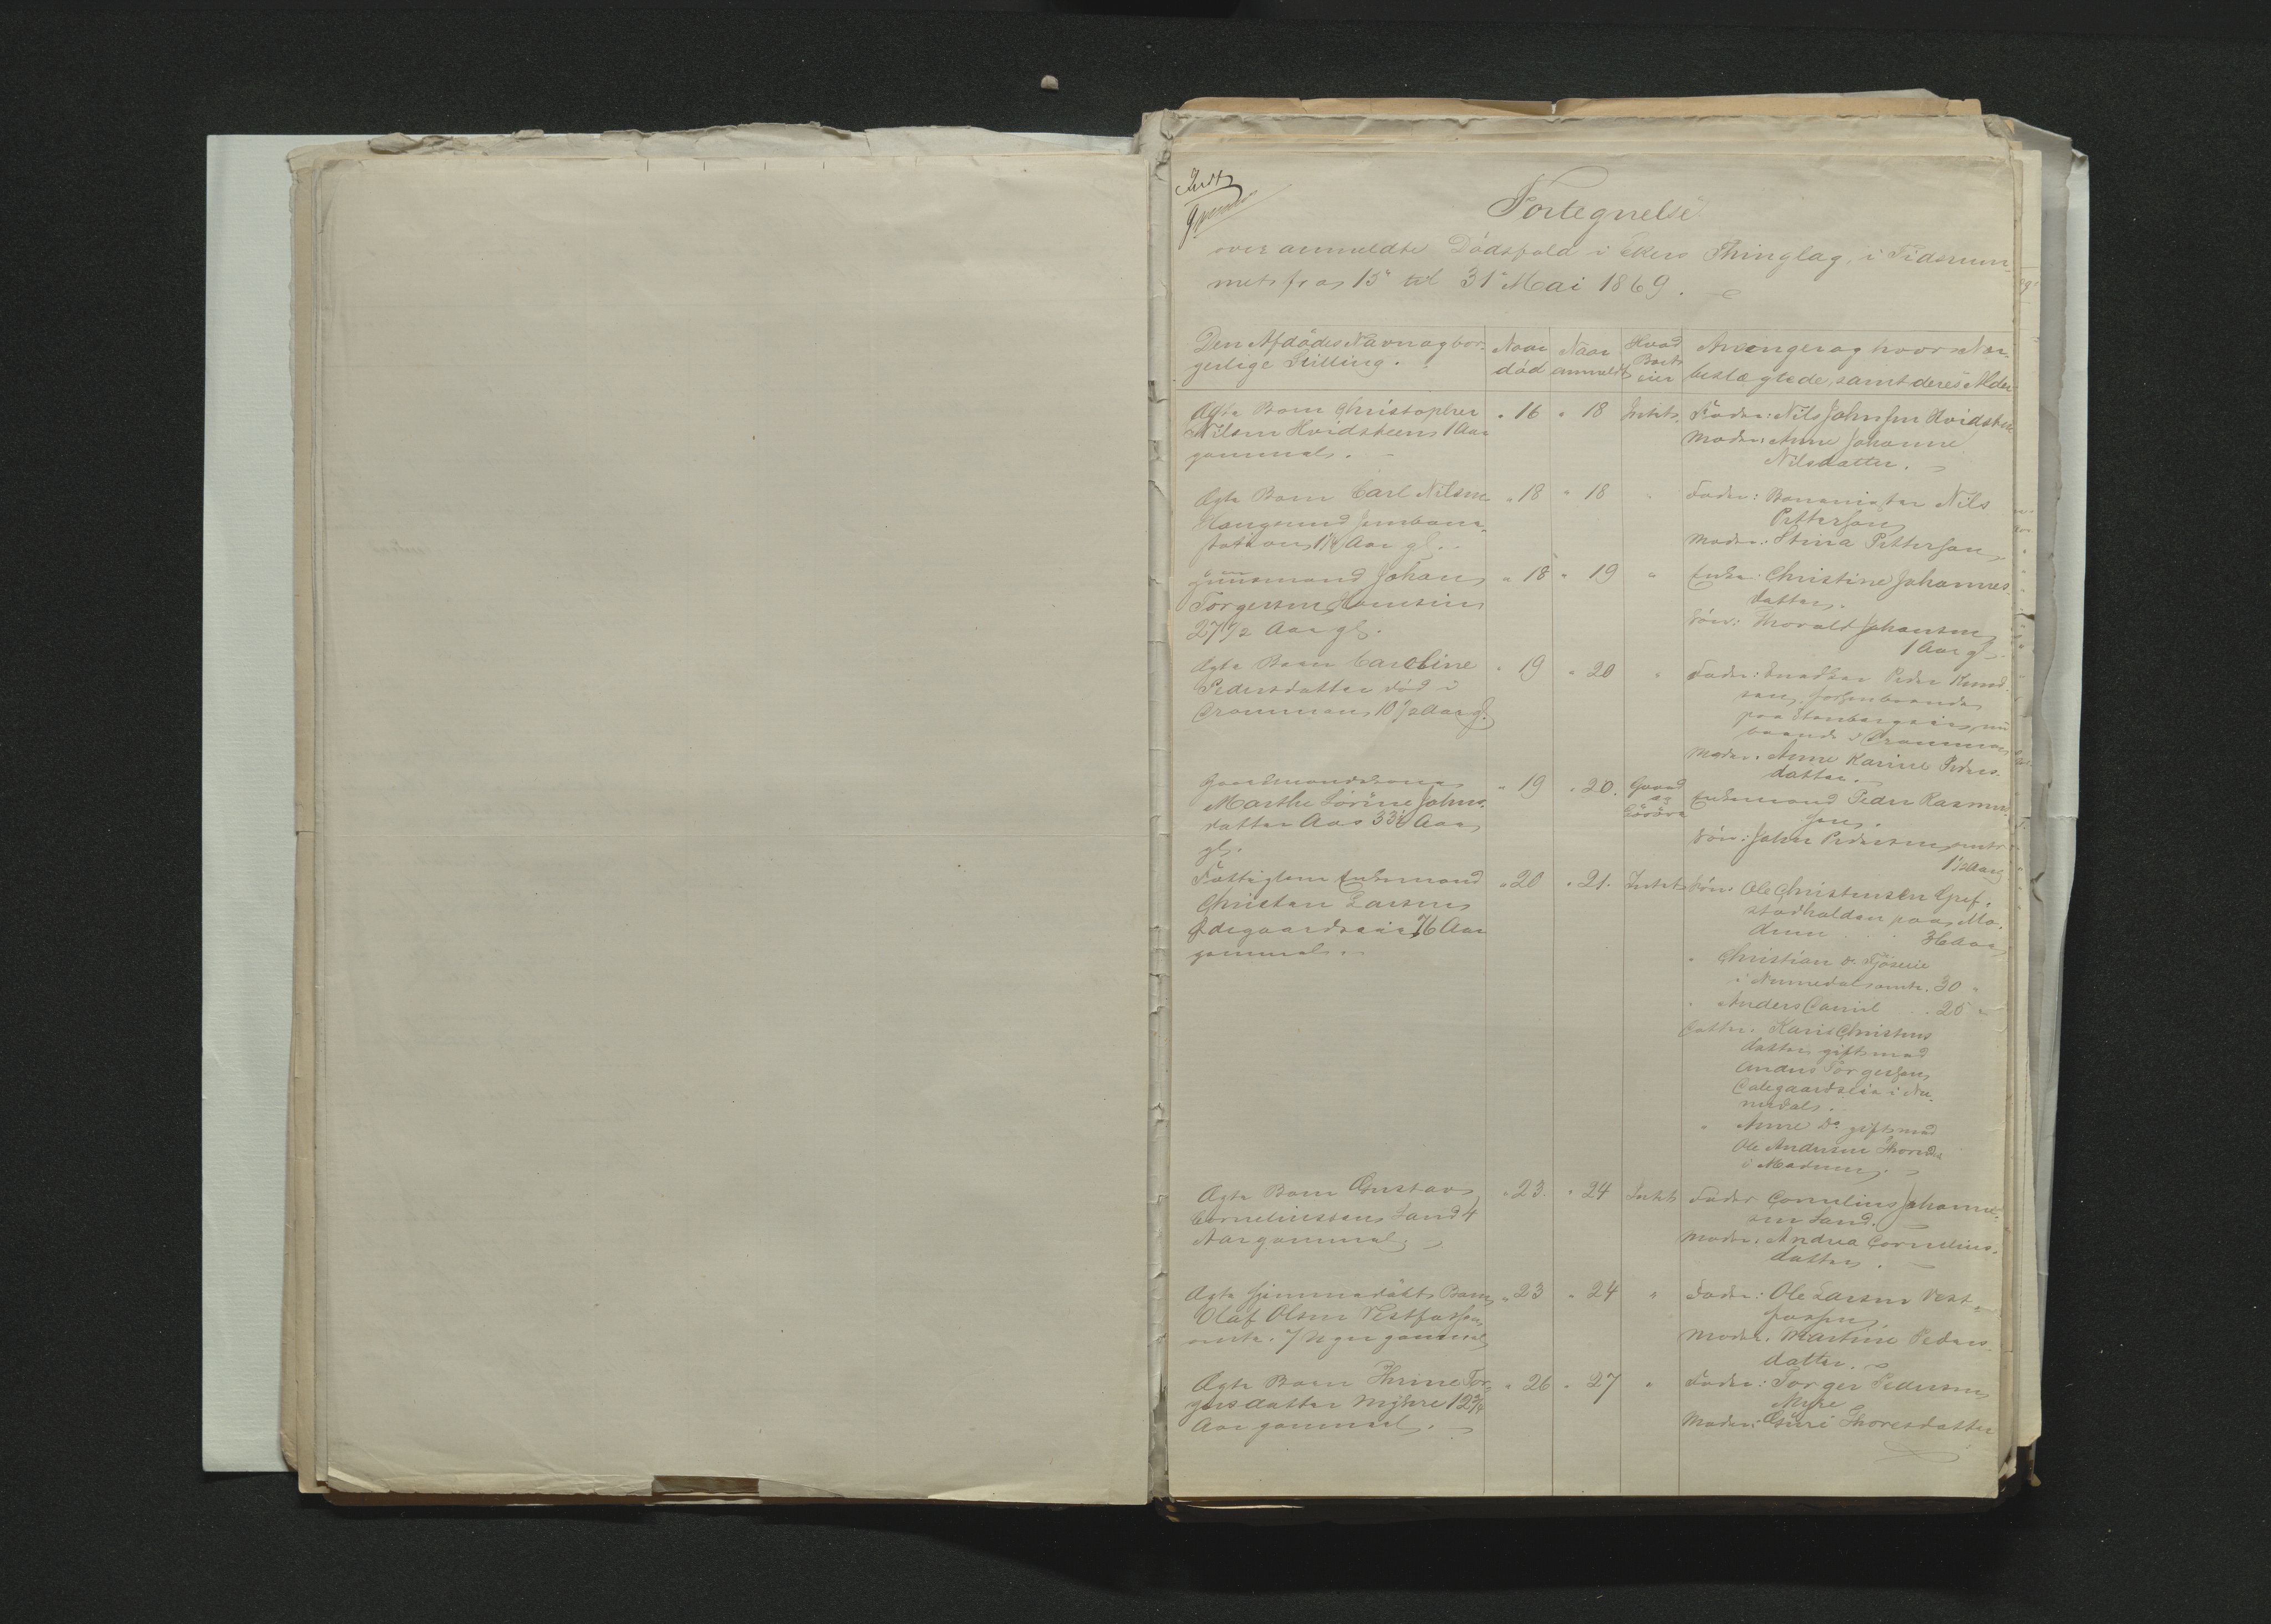 Indt
Fortegnelse
over anmeldte Dödsfald i Ekers Thinglag, i Tidsrum-
met fra 15de til 31te Mai 1869.
Den Afdödes Navn og bor-
gerlige Stilling.
Naar
död
Naar
anmeldt
Hvad
Boet
eier
Arvinger og hvor Nær-
beslægtede, samt deres Alder
Ægte Barn Christopher
Nilsen Hvidsteen 1 Aar
gammel.
" 16 " 18 Intet.
Fader: Nils Johnsen Hvidsteen
Moder: Anne Johanne
Nilsdatter.
Ægte Barn Carl Nilsen
Hougsund Jernbane-
station 1½ Aar gl.
" 18 " 18 "
Fader: Banemester Nils
Petterson
Moder: Stina Petterson
Huusmand Johan
Torgersen
27½ Aar gl.
" 18 " 19 "
Enke: Christine Johannes-
datter.
Sön: Thorvald Johansen
1 Aar gl.
Ægte Barn Caroline
Pedersdatter död i
Drammen 10½ Aar gl.
" 19 " 20 "
Fader: Peder Knud-
sen, forhen boende
paa nu
boende i Drammen
Moder: Anne Karine Peders-
datter.
Gaardmandskone
Marthe Sörine Johns-
datter Aas 33½ Aar
gl.
" 19 " 20. Gaard
og
Lösöre
Enkemand Peder Rasmus-
sen.
Sön: John Pedersen
1½ Aar
Fattiglem Enkemand
Christen Larsen
Ödegaardseie 76 Aar
gammel.
" 20 " 21. Intet
Sön: Ole Christensen
paa Mo-
dum 36 Aar
" Christian Do
i Numedal omtr. 30 "
" Anders Daniel 25 "
Datter: Kari Christens
datter gift med
Anders Torgersen
i Nu-
medal.
" Anne Do gift med
Ole Andersen
i Modum.
Ægte Barn Gustav
Corneliussen Sand 4
Aar gammel.
" 23. " 24 Intet
Fader Cornelius Johanne-
sen Sand.
Moder: Andrea Cornelius-
datter.
Ægte hjemmedöbt Barn
Olaf Olsen Vestfossen
omtr. 7 Uger gammel
" 23 " 24 "
Fader: Ole Larsen Vest-
fossen.
Moder: Martine Peders
datter.
Ægte Barn Thrine Tor-
gersdatter Myhre 12¾
Aar gammel.
" 26 " 27 "
Fader: Torger Pedersen
Myre
Moder: Guri Thoresdatter